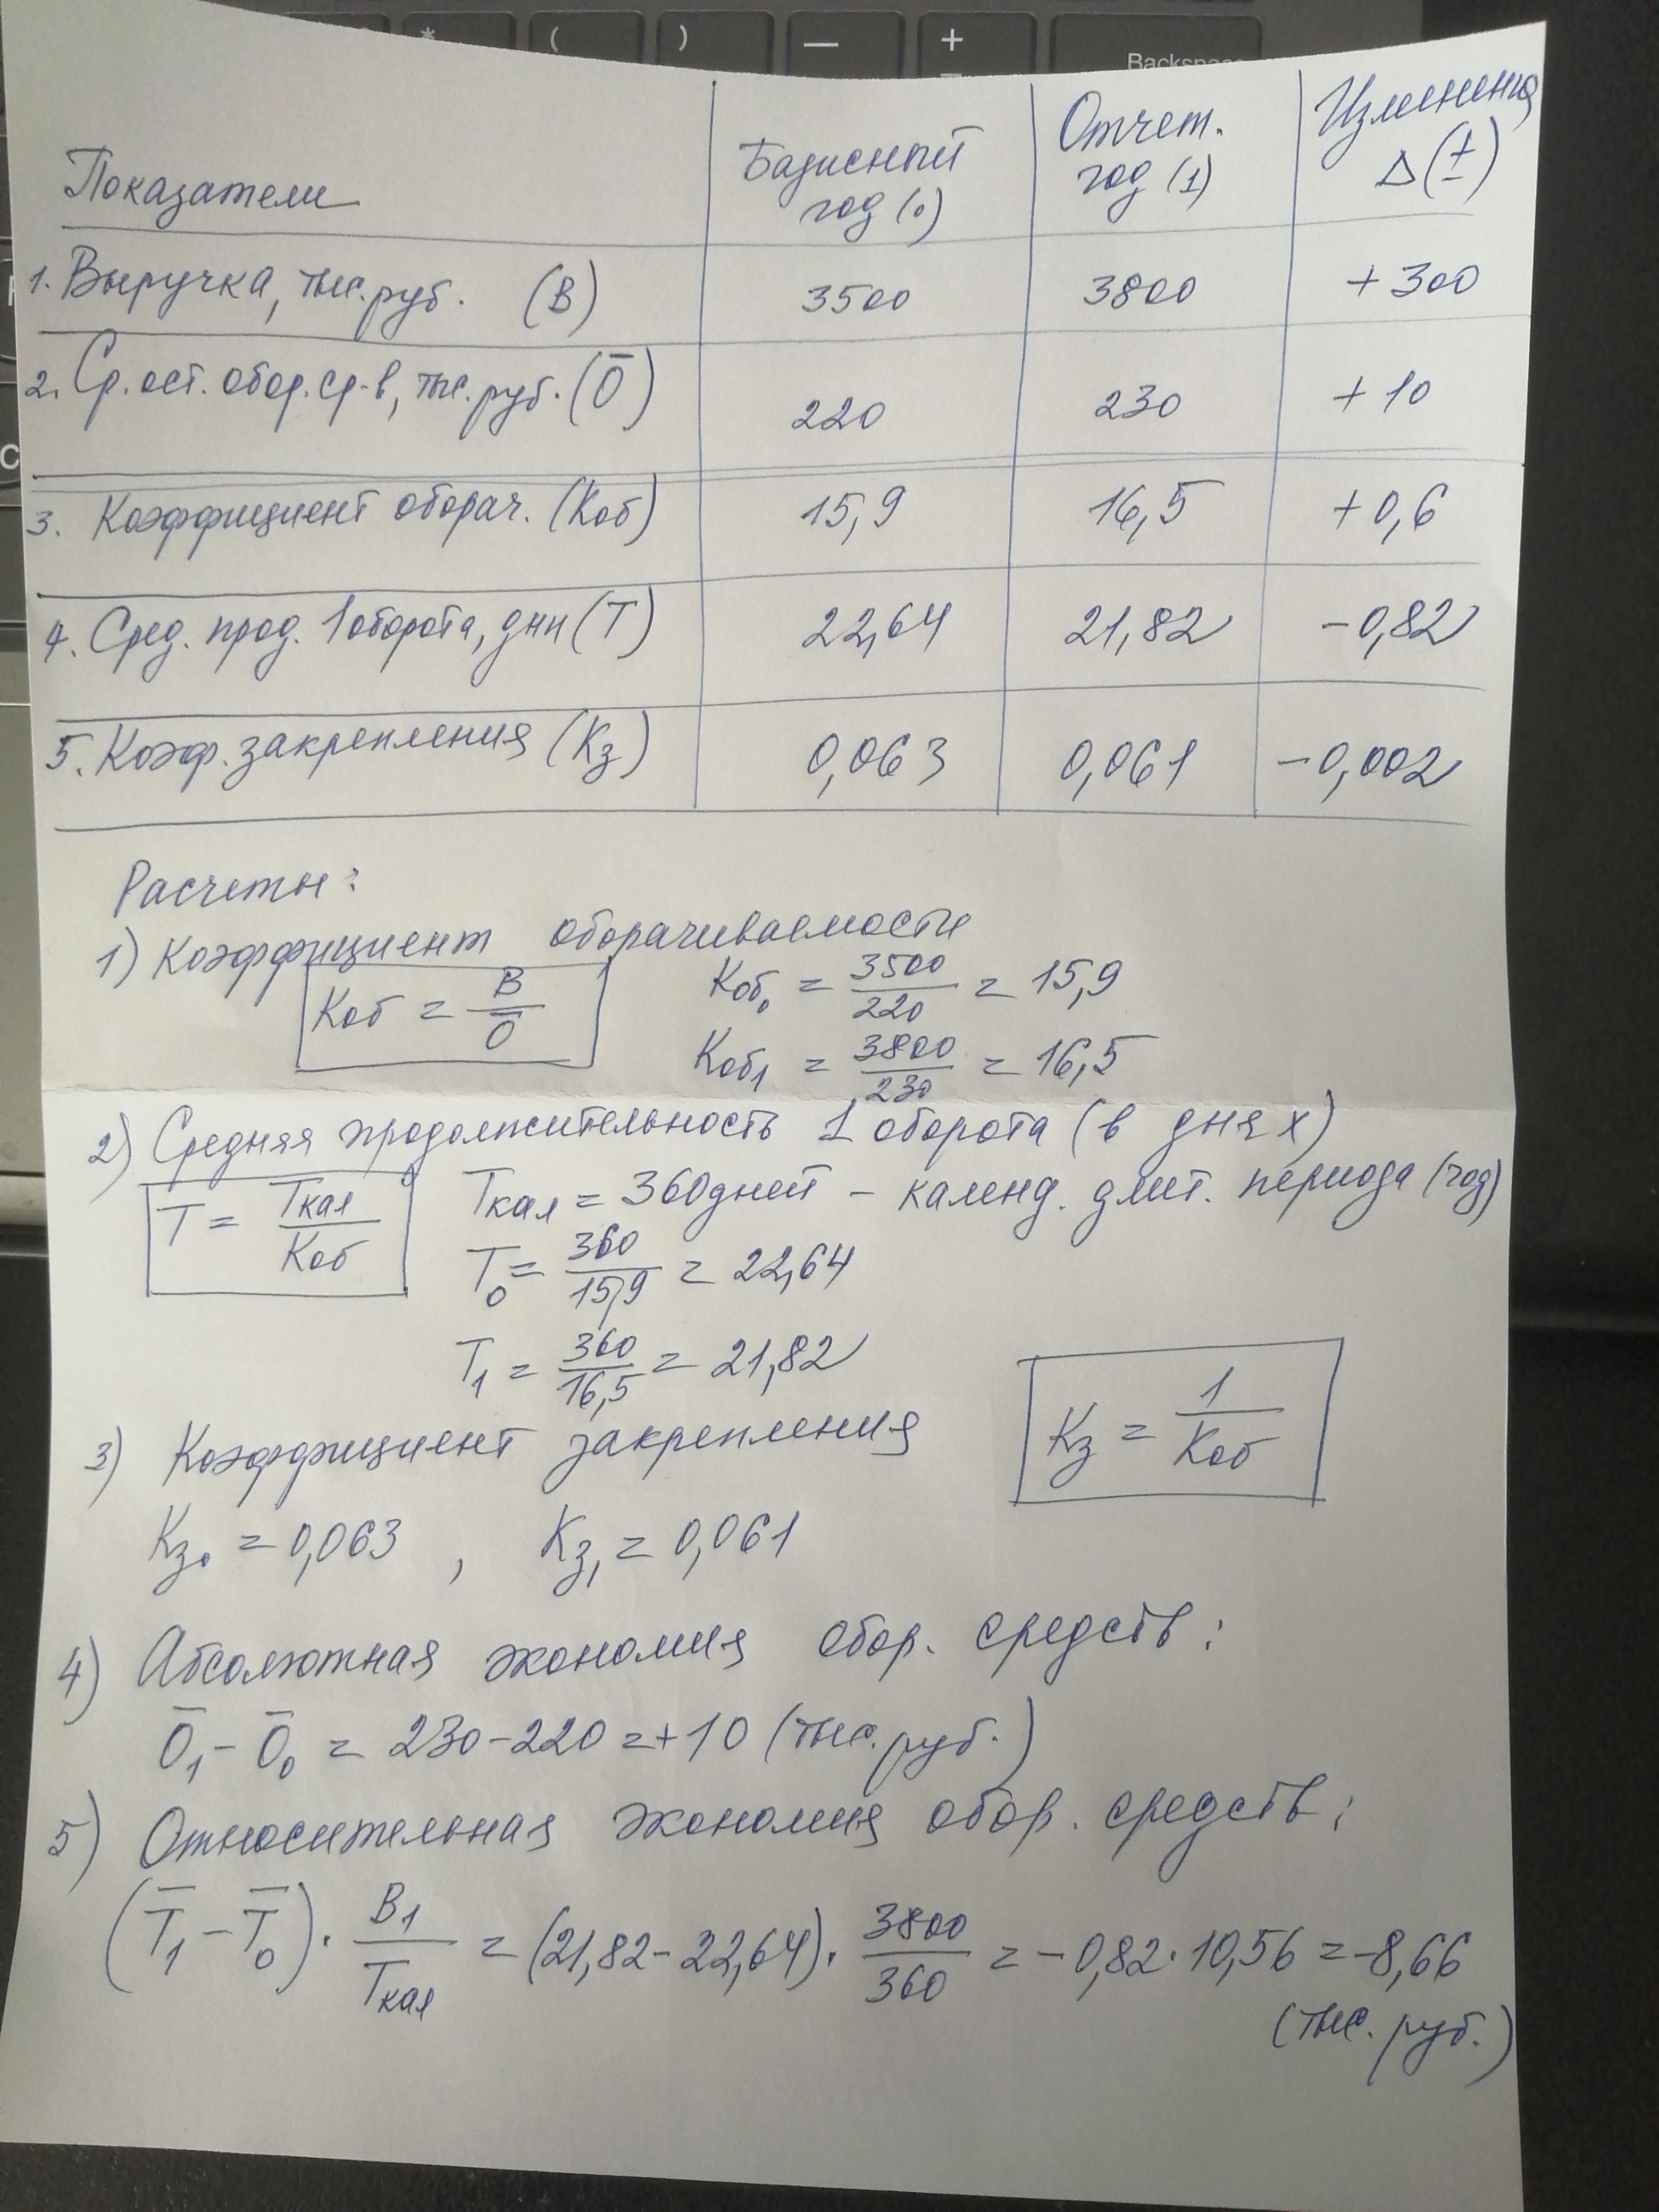 * ( ) — + Backspace
Показатели | Базисный год (0) | Отчет. год (1) | Изменения Δ(±)
1. Выручка, тыс. руб. (В) | 3500 | 3800 | +300
2. Ср. ост. обор. ср-в, тыс. руб. (Ō) | 220 | 230 | +10
3. Коэффициент оборач. (Коб) | 15,9 | 16,5 | +0,6
4. Сред. прод. 1 оборота, дни (Т) | 22,64 | 21,82 | -0,82
5. Коэф. закрепления (Кз) | 0,063 | 0,061 | -0,002
Расчеты:
1) Коэффициент оборачиваемости
Коб = В/Ō Коб₀ = 3500/220 = 15,9
Коб₁ = 3800/230 = 16,5
2) Средняя продолжительность 1 оборота (в днях)
Т = Ткал/Коб Ткал = 360 дней – календ. длит. периода (год)
Т₀ = 360/15,9 = 22,64
Т₁ = 360/16,5 = 21,82
3) Коэффициент закрепления Кз = 1/Коб
Кз₀ = 0,063 , Кз₁ = 0,061
4) Абсолютная экономия обор. средств:
Ō₁ - Ō₀ = 230 - 220 = +10 (тыс. руб.)
5) Относительная экономия обор. средств:
(Т̄₁ - Т̄₀) · В₁/Ткал = (21,82 - 22,64) · 3800/360 = -0,82 · 10,56 = -8,66
(тыс. руб.)